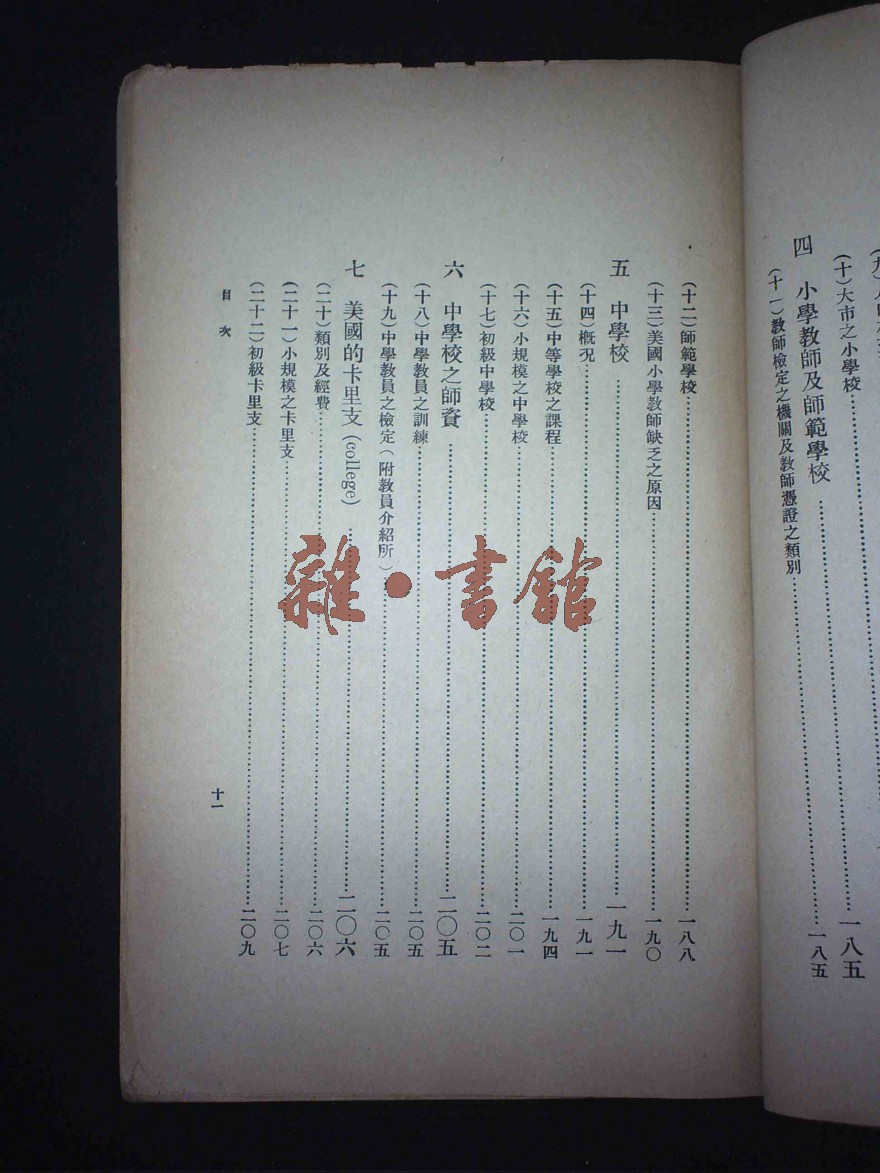 (十)大市之小學校
四 小學教師及師範學校……一八五
(十一)教師檢定之機關及教師憑證之類別……一八五
(十二)師範學校……一八八
(十三)美國小學教師缺乏之原因……一九〇
五 中學校……一九一
(十四)概况……一九一
(十五)中等學校之課程……一九四
(十六)小規模之中學校……二〇一
(十七)初級中學校……二〇二
六 中學校之師資……二〇五
(十八)中學教員之訓練……二〇五
(十九)中學教員之檢定(附教員介紹所)……二〇五
七 美國的卡里支(college)……二〇六
(二十)類別及經費……二〇六
(二十一)小規模之卡里支……二〇七
(二十二)初級卡里支……二〇九
目次
十一
雜·書館